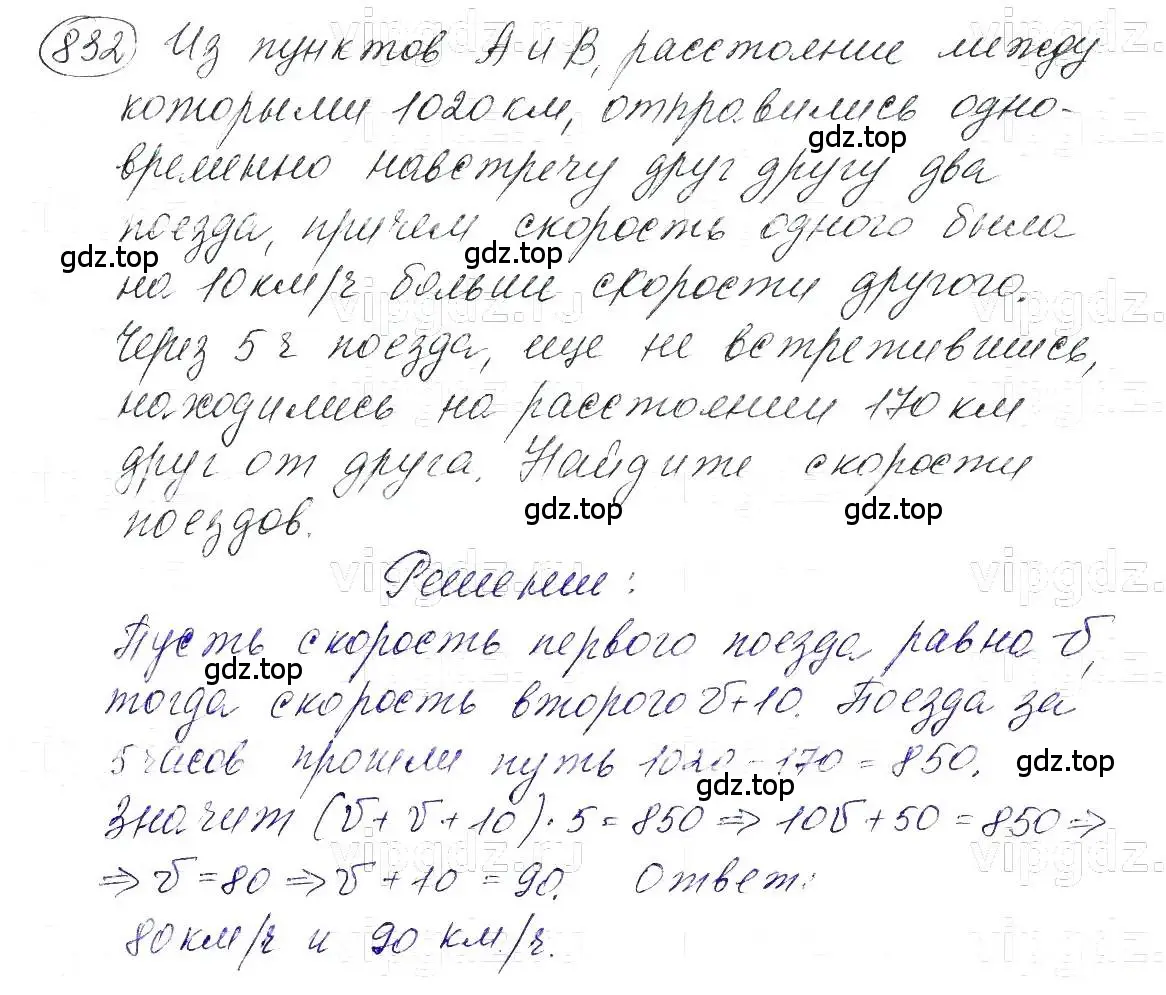 832 Из пунктов А и В, расстояние между
которыми 1020 км, отправились одно-
временно навстречу друг другу два
поезда, причем скорость одного была
на 10 км/ч больше скорости другого.
Через 5 ч поезда, еще не встретившись,
находились на расстоянии 170 км
друг от друга. Найдите скорости
поездов.
Решение:
Пусть скорость первого поезда равна v,
тогда скорость второго v+10. Поезда за
5 часов прошли путь 1020 - 170 = 850.
Значит (v + v + 10) · 5 = 850 ⇒ 10v + 50 = 850 ⇒
⇒ v = 80 ⇒ v + 10 = 90. Ответ:
80 км/ч и 90 км/ч.
gdz.top
gdz.top
gdz.top
gdz.top
gdz.top
gdz.top
gdz.top
gdz.top
vipgdz.ru
vipgdz.
vipgdz.ru
vipgdz.
vipgdz.ru
vipgdz.
vipgdz.ru
vipgdz.